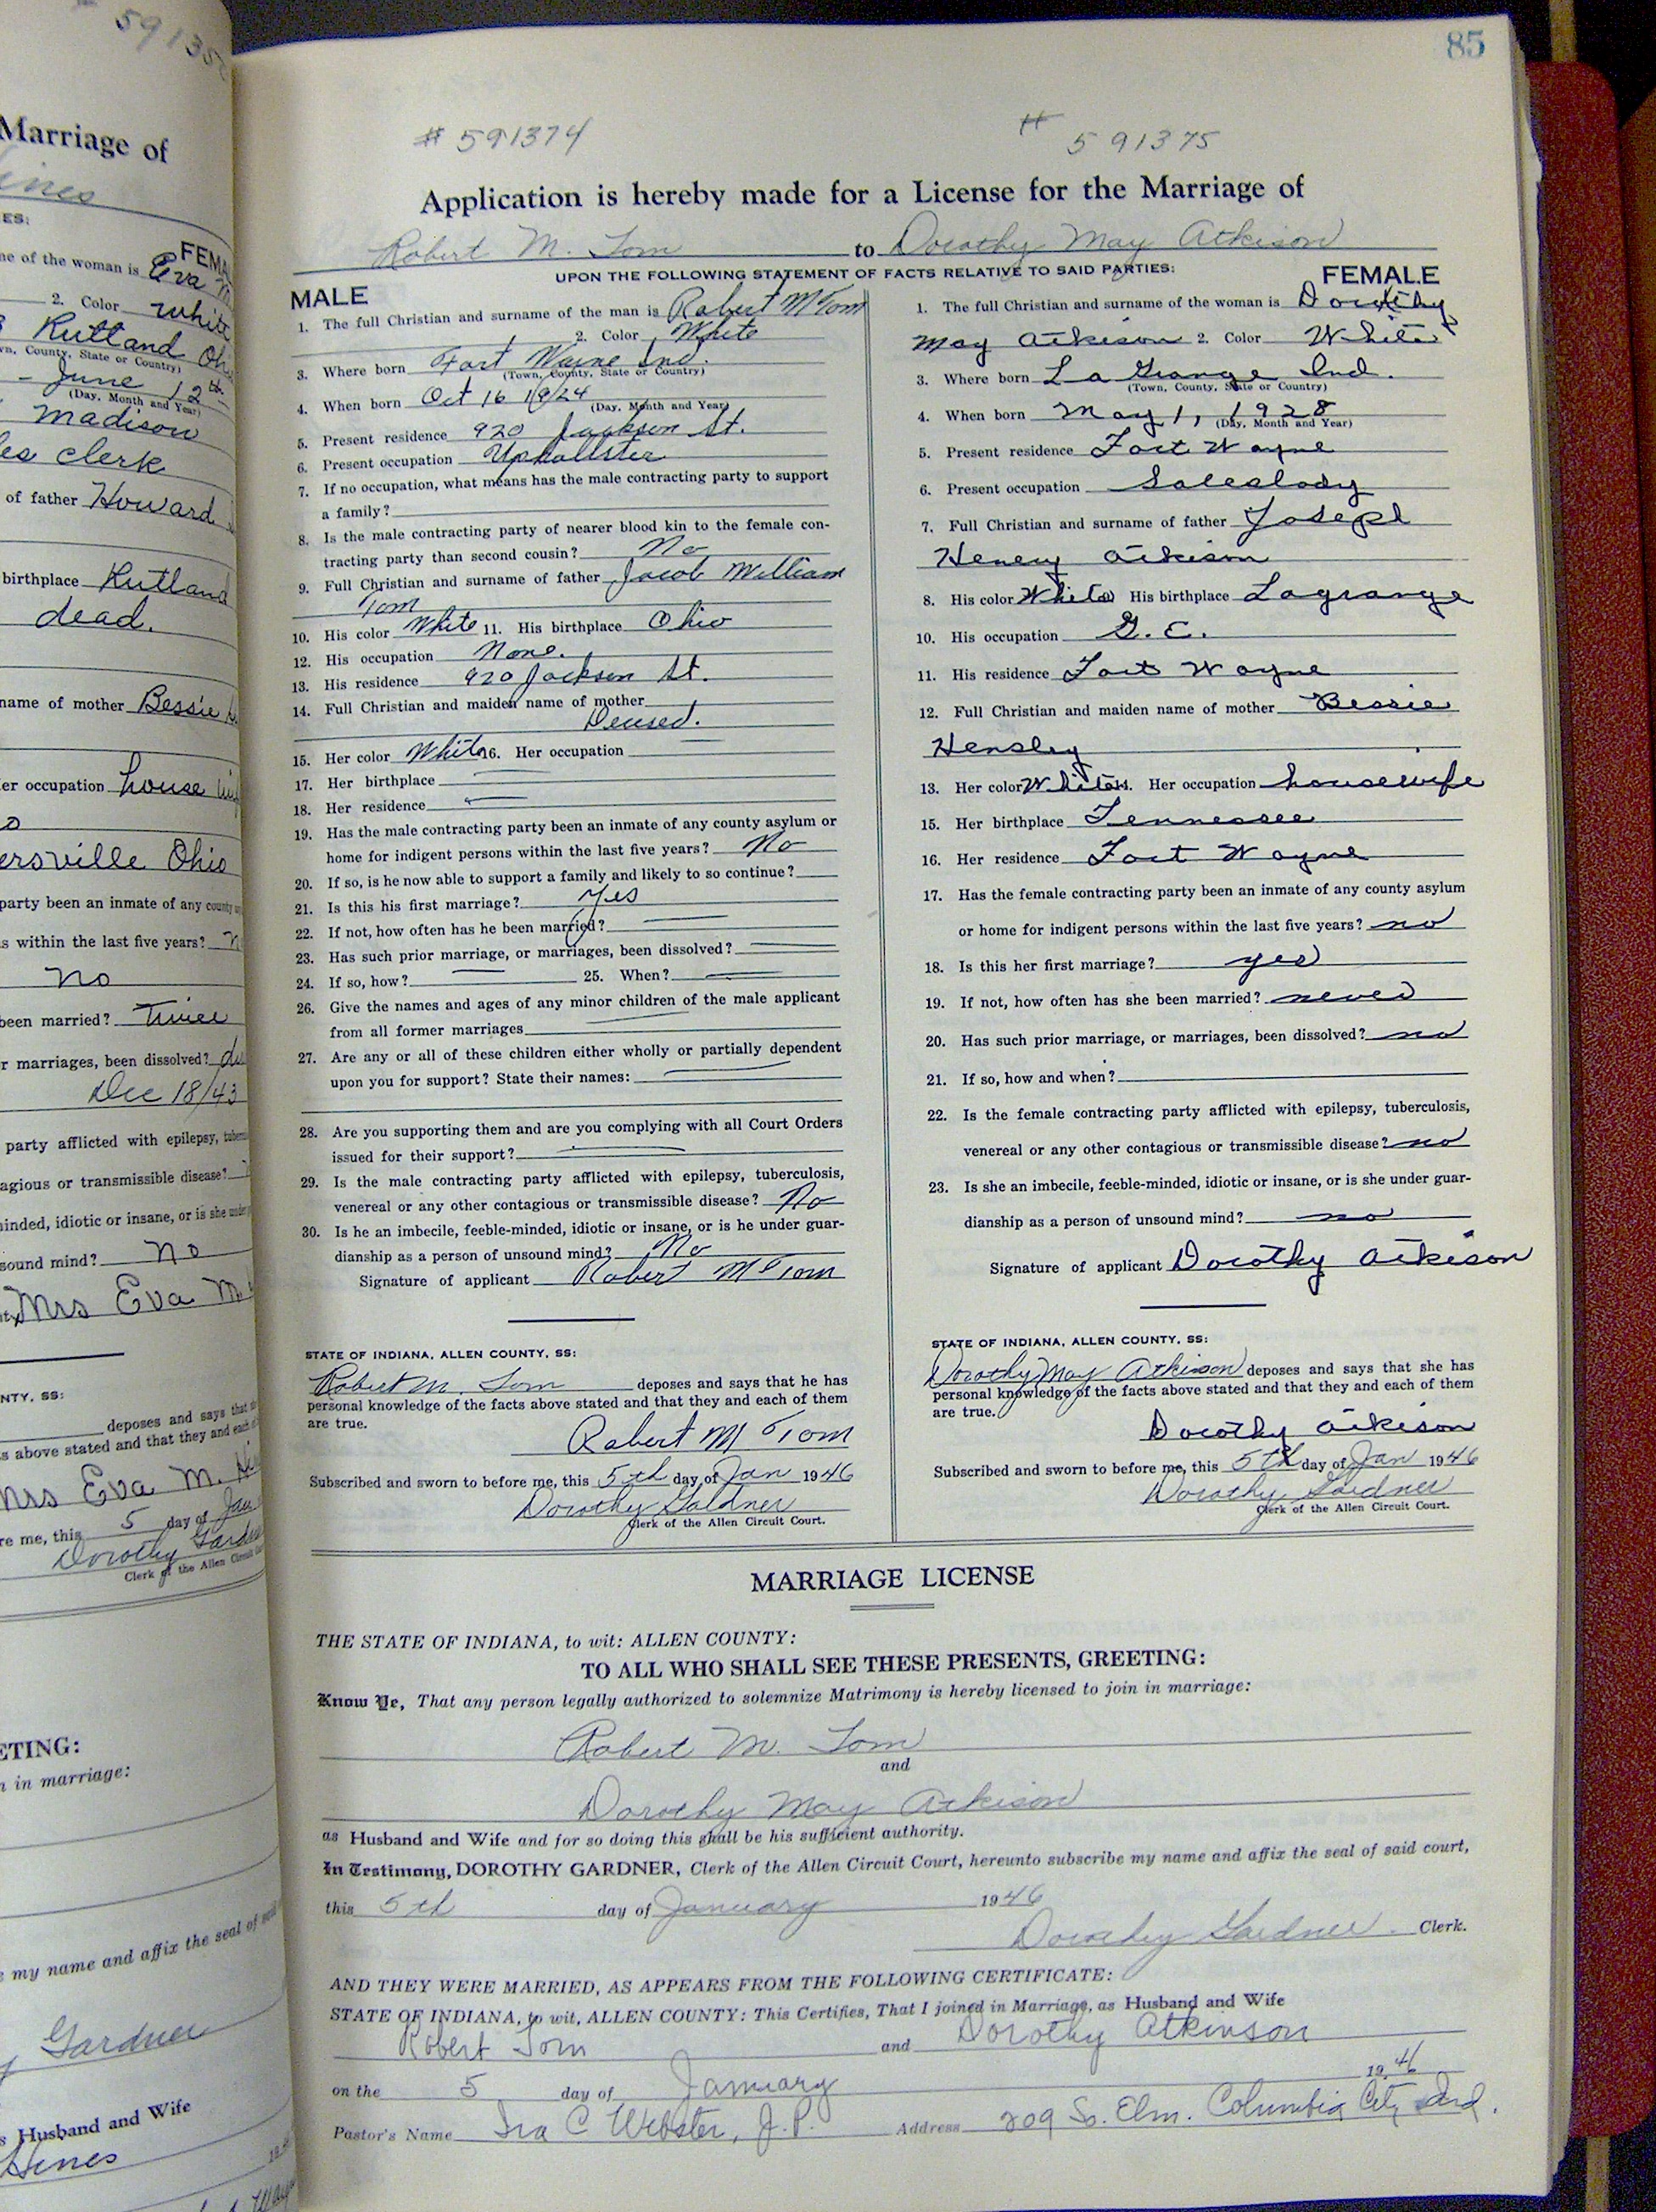 85
# 591374
# 591375
Application is hereby made for a License for the Marriage of
Robert M. Tom to Dorothy May Atkison
UPON THE FOLLOWING STATEMENT OF FACTS RELATIVE TO SAID PARTIES:
MALE
1. The full Christian and surname of the man is Robert M Tom
2. Color White
3. Where born Fort Wayne Ind.
(Town, County, State or Country)
4. When born Oct 16 1924
(Day, Month and Year)
5. Present residence 920 Jackson St.
6. Present occupation Uphollster
7. If no occupation, what means has the male contracting party to support
a family?
8. Is the male contracting party of nearer blood kin to the female con-
tracting party than second cousin? No
9. Full Christian and surname of father Jacob William
Tom
10. His color White 11. His birthplace Ohio
12. His occupation None.
13. His residence 920 Jackson St.
14. Full Christian and maiden name of mother
Deused.
15. Her color White 16. Her occupation
17. Her birthplace
18. Her residence
19. Has the male contracting party been an inmate of any county asylum or
home for indigent persons within the last five years? No
20. If so, is he now able to support a family and likely to so continue?
21. Is this his first marriage? Yes
22. If not, how often has he been married?
23. Has such prior marriage, or marriages, been dissolved?
24. If so, how? 25. When?
26. Give the names and ages of any minor children of the male applicant
from all former marriages
27. Are any or all of these children either wholly or partially dependent
upon you for support? State their names:
28. Are you supporting them and are you complying with all Court Orders
issued for their support?
29. Is the male contracting party afflicted with epilepsy, tuberculosis,
venereal or any other contagious or transmissible disease? No
30. Is he an imbecile, feeble-minded, idiotic or insane, or is he under guar-
dianship as a person of unsound mind? No
Signature of applicant Robert M Tom
STATE OF INDIANA, ALLEN COUNTY, SS:
Robert M. Tom deposes and says that he has
personal knowledge of the facts above stated and that they and each of them
are true.
Robert M Tom
Subscribed and sworn to before me, this 5th day of Jan 1946
Dorothy Gardner
Clerk of the Allen Circuit Court.
FEMALE
1. The full Christian and surname of the woman is Dorothy
May Atkison 2. Color White
3. Where born La Grange Ind.
(Town, County, State or Country)
4. When born May 1, 1928
(Day, Month and Year)
5. Present residence Fort Wayne
6. Present occupation Saleslady
7. Full Christian and surname of father Joseph
Henery Atkison
8. His color White His birthplace Lagrange
10. His occupation G. E.
11. His residence Fort Wayne
12. Full Christian and maiden name of mother Bessie
Hensley
13. Her color White 14. Her occupation housewife
15. Her birthplace Tennessee
16. Her residence Fort Wayne
17. Has the female contracting party been an inmate of any county asylum
or home for indigent persons within the last five years? no
18. Is this her first marriage? yes
19. If not, how often has she been married? never
20. Has such prior marriage, or marriages, been dissolved? no
21. If so, how and when?
22. Is the female contracting party afflicted with epilepsy, tuberculosis,
venereal or any other contagious or transmissible disease? no
23. Is she an imbecile, feeble-minded, idiotic or insane, or is she under guar-
dianship as a person of unsound mind? no
Signature of applicant Dorothy Atkison
STATE OF INDIANA, ALLEN COUNTY, SS:
Dorothy May Atkison deposes and says that she has
personal knowledge of the facts above stated and that they and each of them
are true.
Dorothy Atkison
Subscribed and sworn to before me, this 5th day of Jan 1946
Dorothy Gardner
Clerk of the Allen Circuit Court.
MARRIAGE LICENSE
THE STATE OF INDIANA, to wit: ALLEN COUNTY:
TO ALL WHO SHALL SEE THESE PRESENTS, GREETING:
Know Ye, That any person legally authorized to solemnize Matrimony is hereby licensed to join in marriage:
Robert M. Tom
and
Dorothy May Atkison
as Husband and Wife and for so doing this shall be his sufficient authority.
In Testimony, DOROTHY GARDNER, Clerk of the Allen Circuit Court, hereunto subscribe my name and affix the seal of said court,
this 5th day of January 1946
Dorothy Gardner Clerk.
AND THEY WERE MARRIED, AS APPEARS FROM THE FOLLOWING CERTIFICATE:
STATE OF INDIANA, to wit, ALLEN COUNTY: This Certifies, That I joined in Marriage, as Husband and Wife
Robert Tom and Dorothy Atkinson
on the 5 day of January 1946
Pastor's Name Ira C Webster, J.P. Address 209 So. Elm. Columbia City Ind.
Marriage of
me of the woman is Eva
2. Color White
Rutland
June 12th
(Day, Month and Year)
Madison
clerk
of father Howard
birthplace Rutland
dead.
name of mother Bessie
er occupation house
ersville Ohio
party been an inmate of any county
s within the last five years?
no
been married? Twice
r marriages, been dissolved?
Dec 18/43
party afflicted with epilepsy,
agious or transmissible disease?
minded, idiotic or insane, or is she under
sound mind? No
Mrs Eva M
NTY, SS:
deposes and says that
s above stated and that they and each of
Mrs Eva M.
re me, this 5 day of Jan
Dorothy
Clerk of the Allen Circuit
ETING:
n in marriage:
my name and affix the seal of
Gardner
s Husband and Wife
Hines